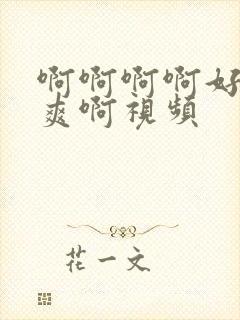 啊啊啊啊好
爽啊視頻
花一文